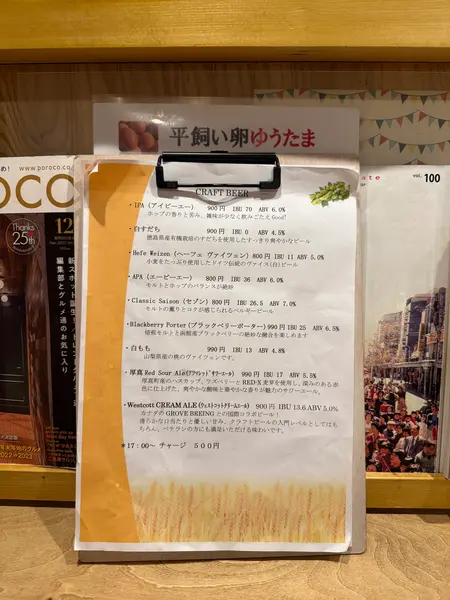 平飼い卵ゆうたま
め! www.poroco.co
OCO
Thanks 25th
12
新スポット誕生!
編集部とグルメ通のお気に入り
2022▶2023
vol. 100
CRAFT BEER
・IPA (アイピーエー) 900円 IBU 70 ABV 6.0%
ホップの香りと苦み、雑味が少なく飲みごたえ Good!
・白すだち 900円 IBU 0 ABV 4.5%
徳島県産有機栽培のすだちを使用したすっきり爽やかなビール
・Hefe Weizen (ヘーフェ ヴァイツェン) 800円 IBU 11 ABV 5.0%
小麦をたっぷり使用したドイツ伝統のヴァイス(白)ビール
・APA (エーピーエー) 800円 IBU 36 ABV 6.0%
モルトとホップのバランスが絶妙
・Classic Saison (セゾン) 800円 IBU 26.5 ABV 7.0%
モルトの薫りとコクが感じられるベルギービール
・Blackberry Porter (ブラックベリーポーター) 990円 IBU 25 ABV 6.5%
焙煎モルトと函館産ブラックベリーの絶妙な融合を楽しめます
・白もも 990円 IBU 13 ABV 4.8%
山梨県産の桃のヴァイツェンです。
・厚真 Red Sour Ale(アツマレッドサワーエール) 990円 IBU 17 ABV 5.5%
厚真町産のハスカップ、ラズベリーと RED-X 麦芽を使用し、深みのある赤
色に仕上げた、爽やかな酸味と華やかな香りが魅力のサワーエール。
・Westcott CREAM ALE (ウェストコットクリームエール) 900円 IBU 13.6 ABV 5.0%
カナダの GROVE BREEING との国際コラボビール!
滑らかな口当たりと優しい甘み、クラフトビールの入門レベルとしてはも
ちろん、ベテランの方にも満足いただける味わいです。
*17:00~ チャージ 500円